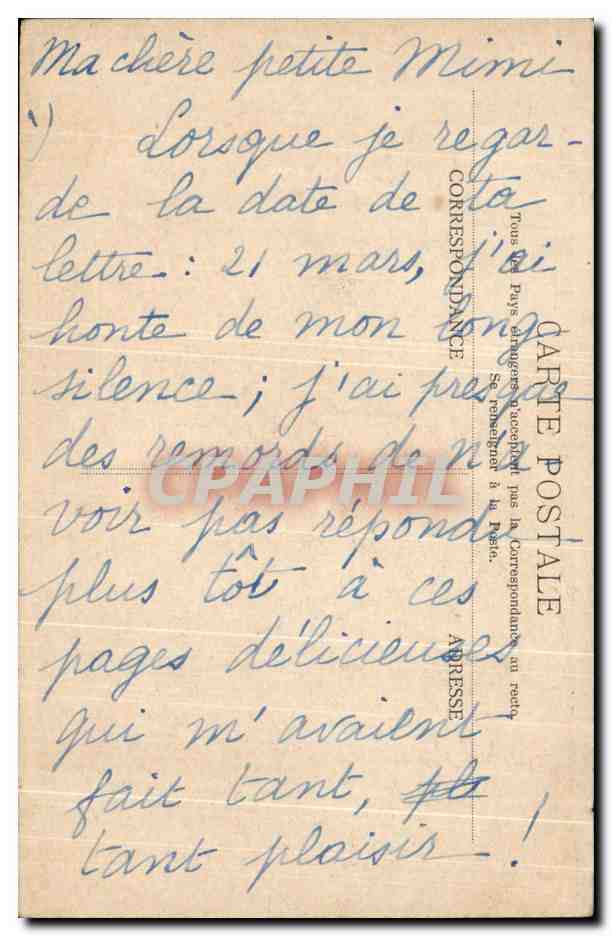 Ma chère petite Mimi
1) Lorsque je regar-
de la date de ta
lettre : 21 mars, j'ai
honte de mon long
silence ; j'ai presque
des remords de n'a
voir pas répondu
plus tôt à ces
pages délicieuses
qui m'avaient
fait tant,
tant plaisir !
CARTE POSTALE
Tous les Pays étrangers n'acceptent pas la Correspondance au recto
Se renseigner à la Poste.
CORRESPONDANCE
ADRESSE
CPAPHIL